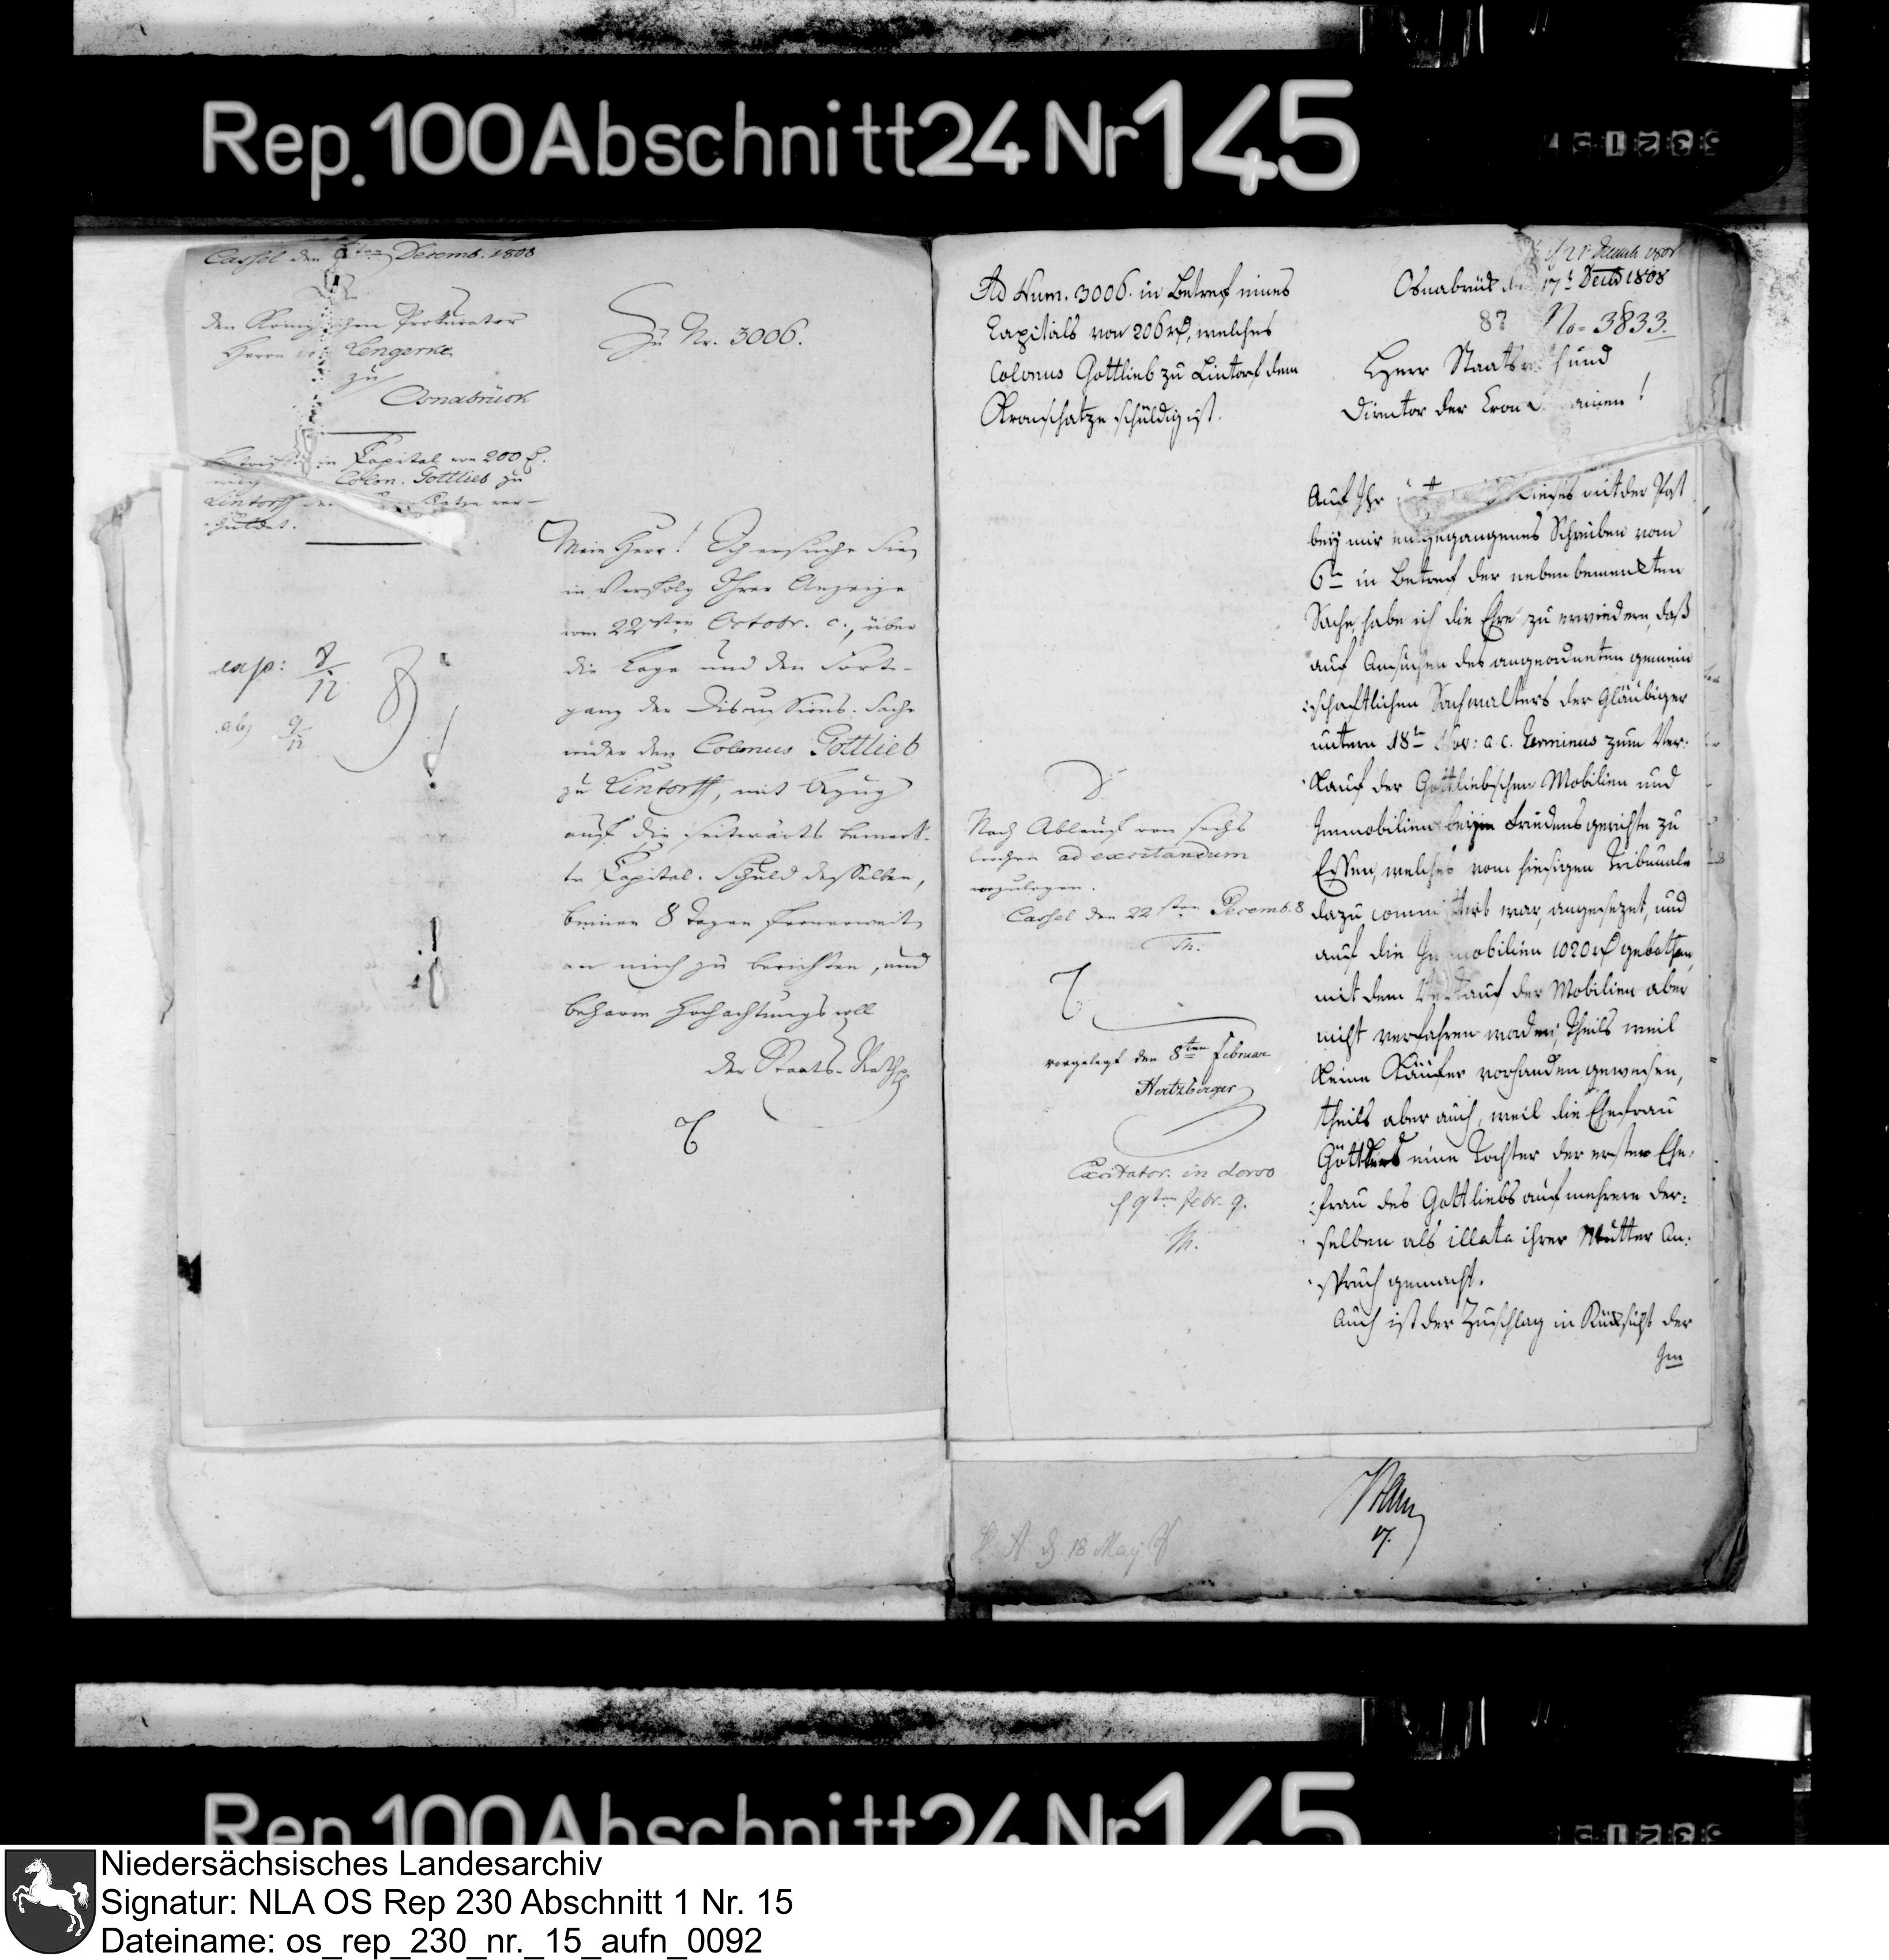 Rep. 100 Abschnitt 24 Nr 145
Cassel den 6ten Decemb. 1808
den Königlichen Prokurator
Herrn von Lengerke
zu
Osnabrück
betrift ein Capital von 200
Colon. Gottlieb zu
Lintorff ver-
schuldet.
exp: 8/12
abg 9/12
Zu Nr. 3006.
Mein Herr! Ich ersuche Sie,
in Verfolg Ihrer Anzeige
vom 22sten Octobr. c., über
die Lage und den Fort-
gang der Discussions-Sache
wider den Colonus Gottlieb
zu Lintorff, mit Bezug
auf die seitwärts bemerk-
te Capital-Schuld desselben,
binnen 8 Tagen fernerweit
an mich zu berichten, und
beharre hochachtungsvoll
der Staats-Rath
Ad Num. 3006. in Betref eines
Capitals von 206 rt, welches
Colonus Gottlieb zu Lintorf dem
Kronschatze schüldig ist.
Nach Ablauf von sechs
Wochen ad excitandum
vorzulegen.
Cassel den 22sten Decemb. 8
Th.
vorgelegt den 8ten Februar
Hertzberger
Excitator. in dorso
9ten Febr. 9.
Th.
21 Decemb 1808
Osnabrück den 17t Decb 1808
87 No= 3833.
Herr Staatsrath und
Director der Cron Domainen!
Auf Ihr dieses mit der Post
bey mir eingegangenes Schreiben vom
6tn in Betref der nebenbemerkten
Sache, habe ich die Ehre zu erwiedern, daß
auf Ansuchen des angeordneten gemein
schaftlichen Sachwalters der Gläubiger
untern 18tn Nov: a. c. Terminus zum Ver-
kauf der Gottliebschen Mobilien und
Immobilien beym Friedensgerichte zu
Essen, welches vom hiesigen Tribunale
dazu committirt war, angesezet, und
auf die Immobilien 1020 rt gebothen,
mit dem Verkauf der Mobilien aber
nicht verfahren worden; theils weil
keine Käufer vorhanden gewesen,
theils aber auch, weil die Ehefrau
Göttlieb eine Tochter der ersten Ehe-
frau des Gottliebs auf mehrere der-
selben als illata ihrer Mutter An-
spruch gemacht.
Auch ist der Zuschlag in Rücksicht der
Im
18 May
Rep. 100 Abschnitt 24 Nr 145
Niedersächsisches Landesarchiv
Signatur: NLA OS Rep 230 Abschnitt 1 Nr. 15
Dateiname: os_rep_230_nr._15_aufn_0092